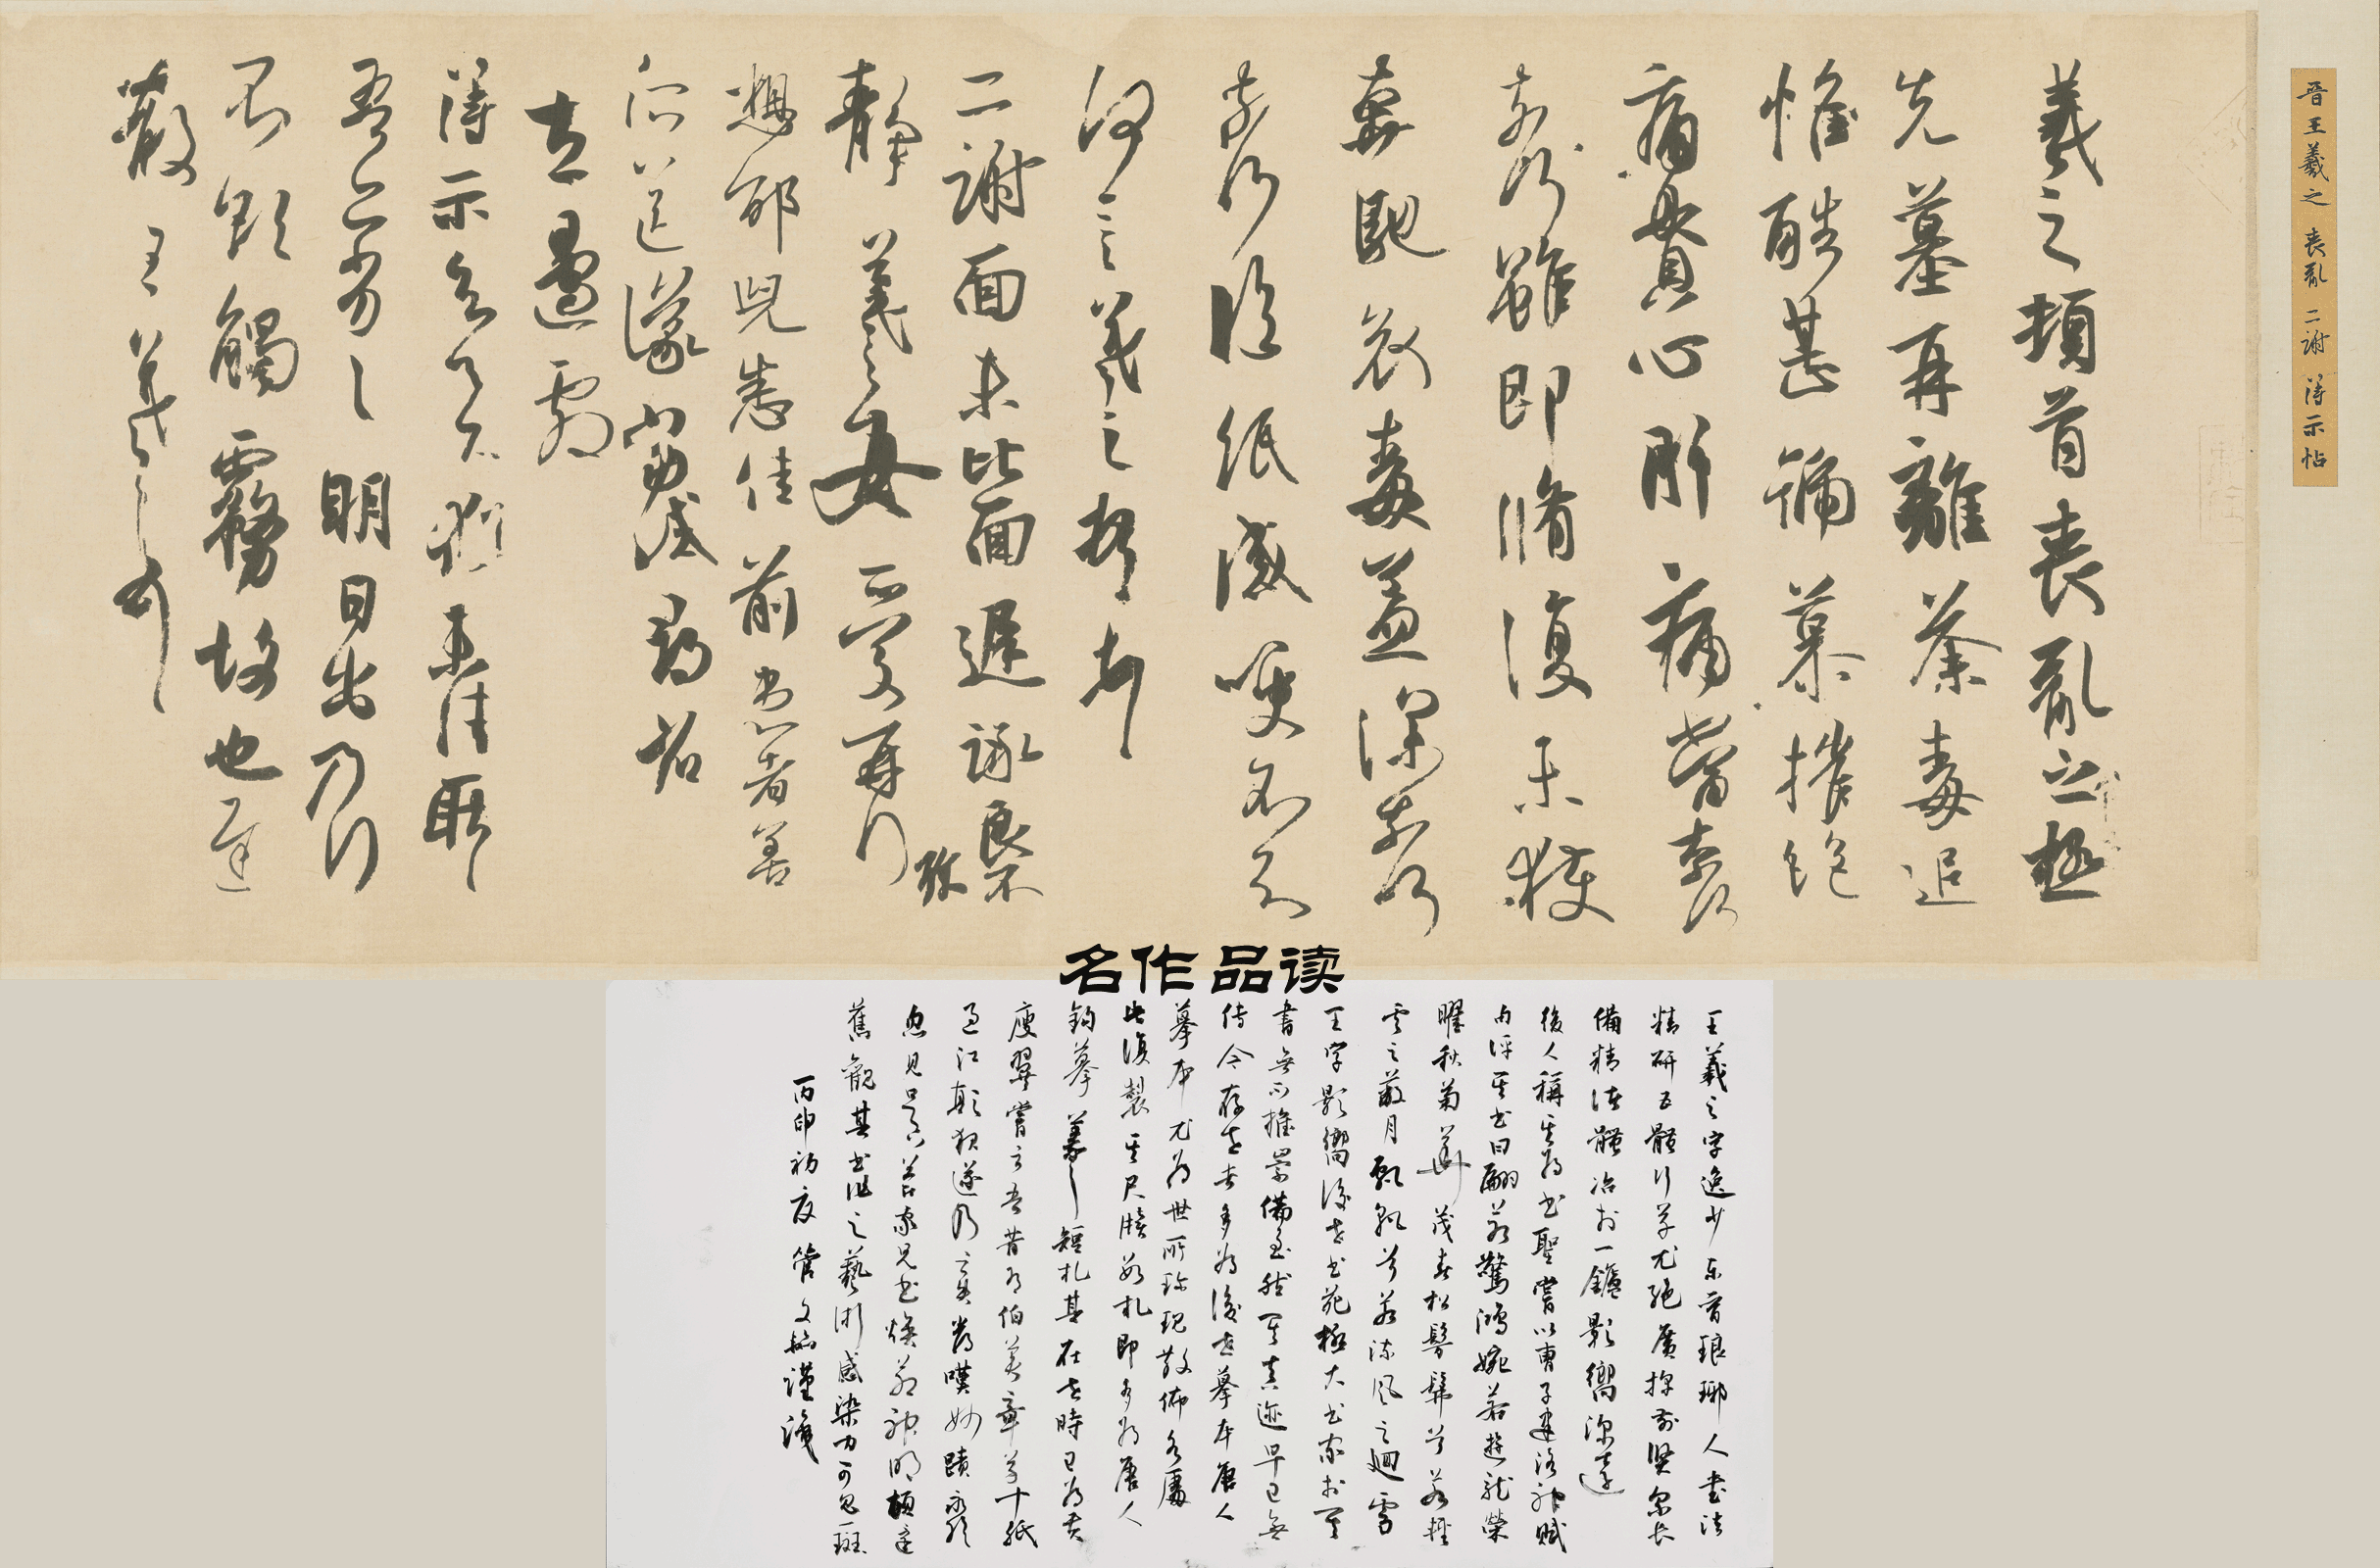 晋王羲之 丧乱 二謝 得示帖
羲之頓首喪亂之極
先墓再離荼毒追
惟酷甚號慕摧絶
痛貫心肝痛當奈何
奈何雖即脩復未獲
奔馳哀毒益深奈何
奈何臨紙感哽不知
何言羲之頓首頓首
二謝面未比面遲詠良不
靜羲之女愛再拜
想邵兒悉佳前患者善
所送議當試尋省
左邊劇
得示知足下猶未佳耿耿
吾亦劣劣明日出乃行
不欲觸霧故也遲
散王羲之頓首
名作品读
王羲之字逸少东晋琅琊人書法
精研五體行草尤絶廣採前賢眾長
備精諸體冶於一鑪影響深遠
後人稱其為書聖嘗以曹子建洛神賦
句評其書曰翩若驚鴻婉若遊龍榮
曜秋菊華茂春松髣髴兮若輕
雲之蔽月飄颻兮若流風之迴雪
王字影響後世書苑極大書家於羲
書無不推崇備至然羲真迹早已無
传今存世者多為後世摹本唐人
摹本尤為世所珍現散佈各屬
此復製羲尺牘數札即多為唐人
鈎摹羲之短札其在世時已為貴
廋翼嘗言吾昔有伯英章草十紙
過江顛狽遂乃亡失常嘆妙蹟永絶
忽見足下答家兄書煥若神明頓還
舊觀其書法之藝術感染力可見一斑
丙申初夏管文輪謹識